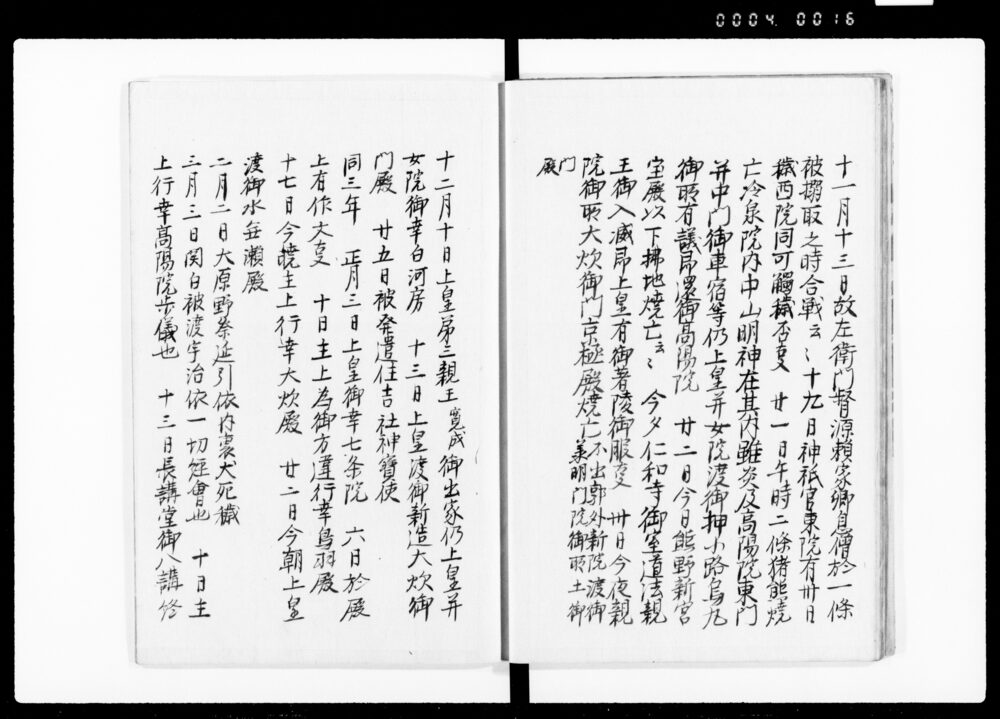 0004.0016
十一月十三日故左衛門督源頼家卿息僧於一條
被搦取之時合戦云〻十九日神祇官東院有卅日
穢西院同可觸穢否事 廿一日午時二條猪熊焼
亡冷泉院内中山明神在其内雖炎及高陽院東門
并中門御車宿等仍上皇并女院渡御押小路烏丸
御所有議即還御高陽院 廿二日今日熊野新宮
宝殿以下拂地焼亡云〻 今夕仁和寺御室道法親
王御入滅昂上皇有御著陵御服事 卅日今夜親
院御所大炊御門京極殿焼亡不出郭外新院渡御
門 美明門院御所土御
殿
十二月十日上皇第三親王 寛成 御出家仍上皇并
女院御幸白河房 十三日上皇渡御新造大炊御
門殿 廿五日被発遣住吉社神寶使
同三年 正月三日上皇御幸七条院 六日於殿
上有作文事 十日主上為御方違行幸鳥羽殿
十七日今暁主上行幸大炊殿 廿二日今朝上皇
渡御水無瀬殿
二月二日大原野祭延引依内裏犬死穢
三月三日関白被渡宇治依一切経會也 十日主
上行幸高陽院歩儀也 十三日長講堂御八講修